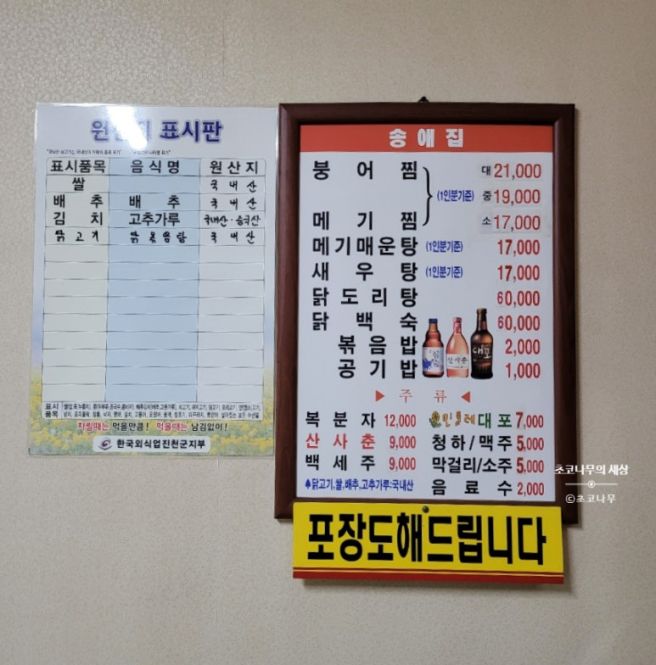 원산지 표시판
표시품목 음식명 원산지
쌀 국내산
배추 배추 국내산
김치 고추가루 국내산·중국산
닭고기 닭볶음탕 국내산
표시
품목
차릴때는 먹을만큼! 먹을때는 남김없이!
한국외식업진천군지부
송애집
붕어찜 대 21,000
(1인분기준) 중 19,000
메기찜 소 17,000
메기매운탕 (1인분기준) 17,000
새우탕 (1인분기준) 17,000
닭도리탕 60,000
닭백숙 60,000
볶음밥 2,000
공기밥 1,000
▶ 주류 ◀
복분자 12,000 민들레대포 7,000
산사춘 9,000 청하/맥주 5,000
백세주 9,000 막걸리/소주 5,000
♠닭고기,쌀,배추,고추가루:국내산 음료수 2,000
포장도해드립니다
초코나무의 세상
©초코나무